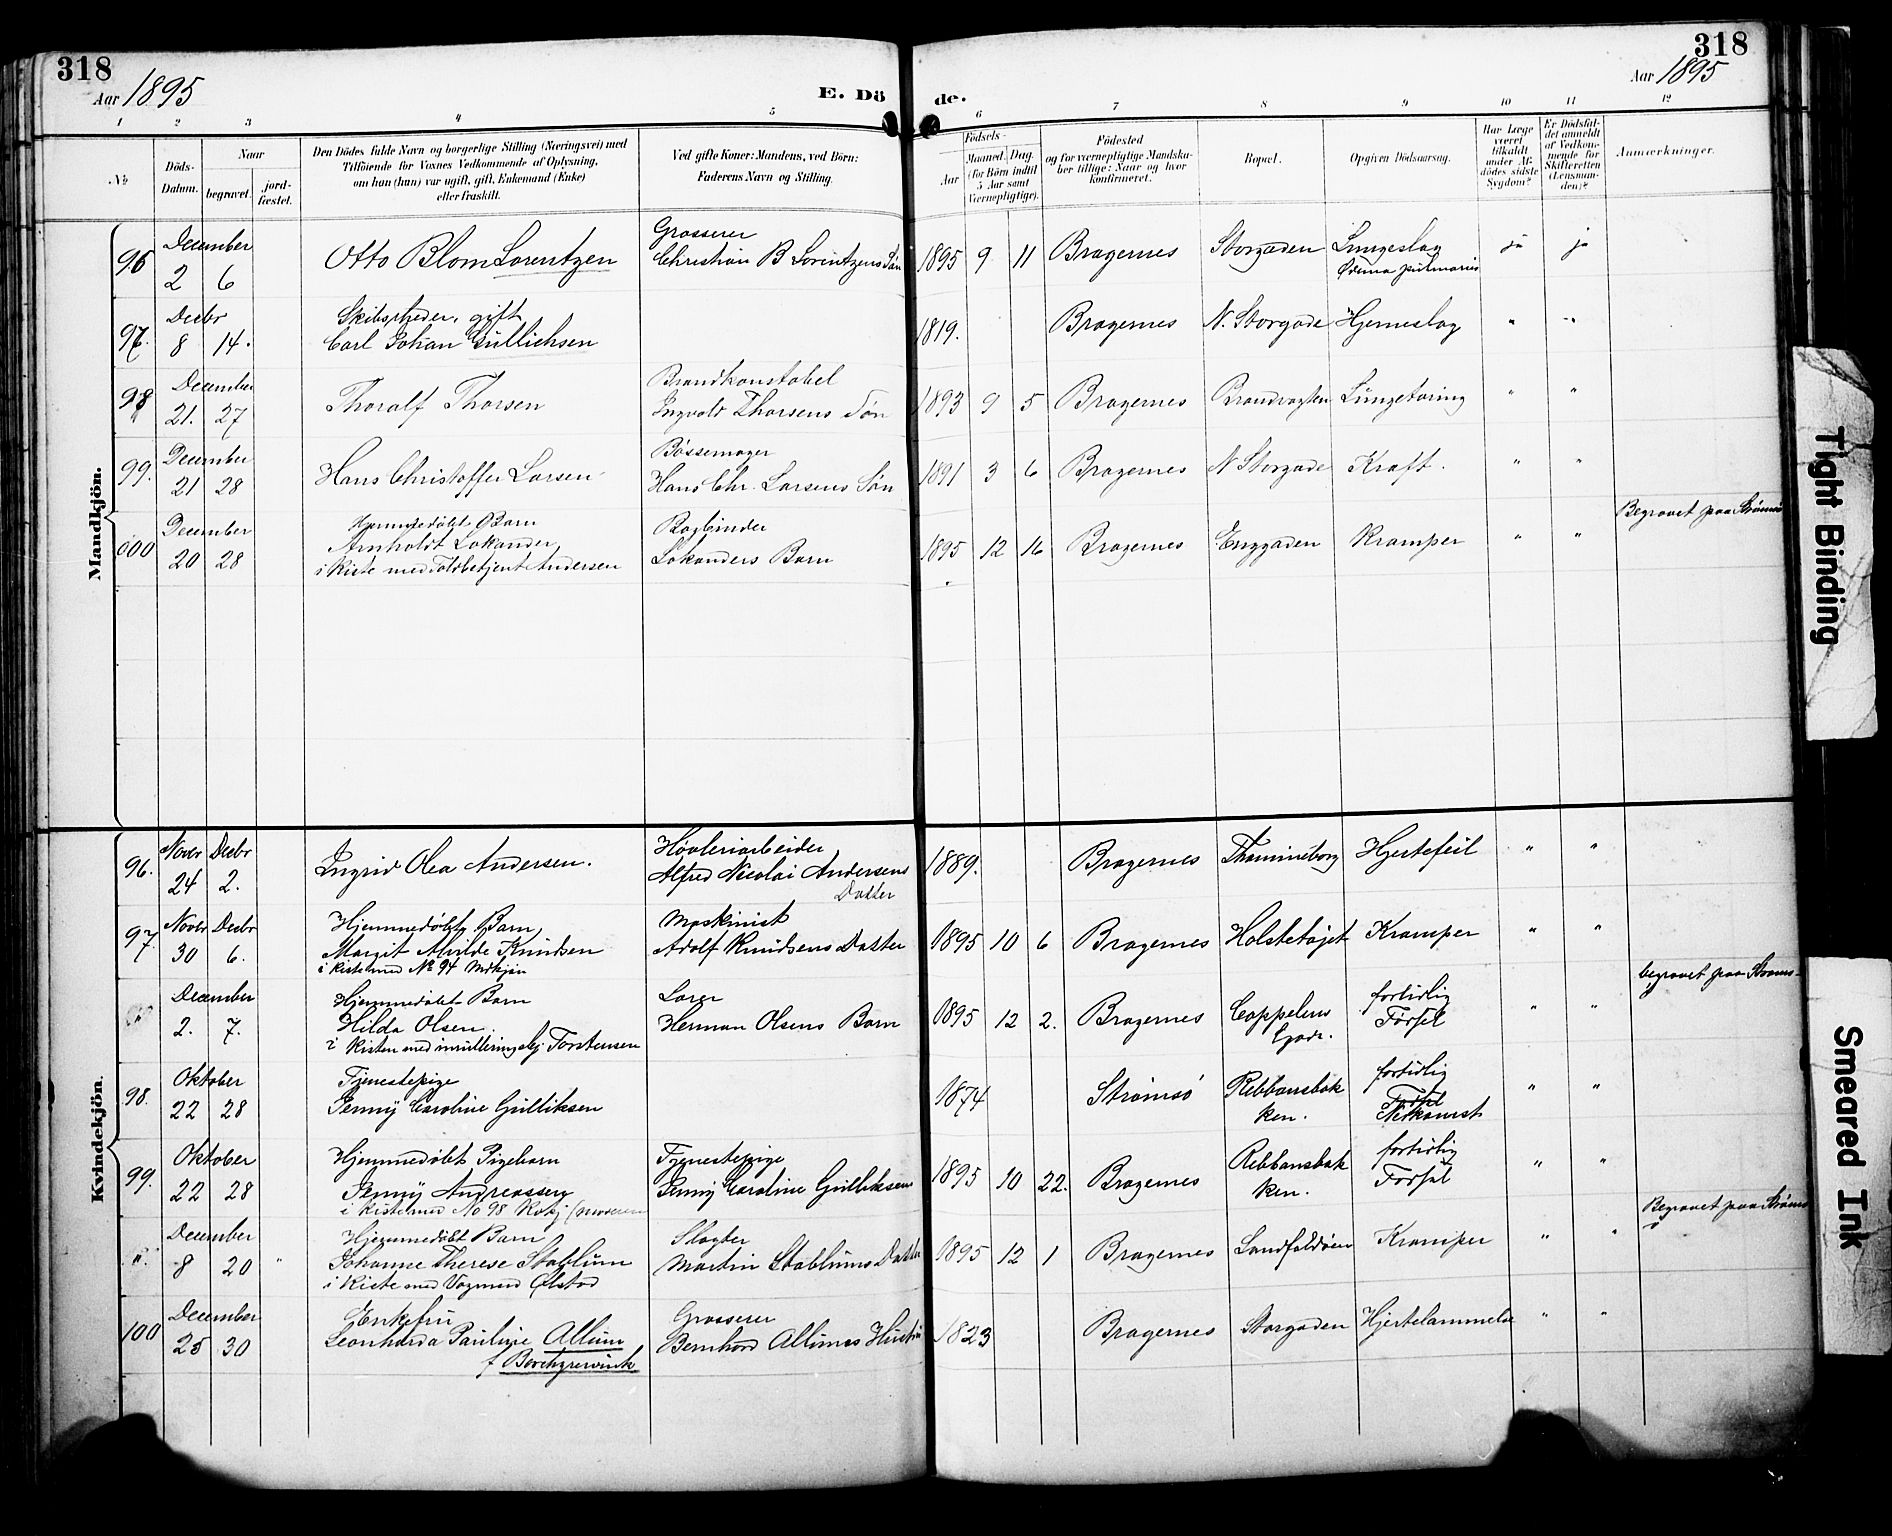 318
Aar 1895
E. Dö
de.
318
Aar 1895
1
2
3
4
5
6
7
8
9
10
11
12
No
Döds-
Datum.
Naar
begravet.
jord-
fæstet.
Den Dödes fulde Navn og borgerlige Stilling (Næringsvei) med
Tilföiende for Voxnes Vedkommende af Oplysning,
om han (hun) var ugift, gift, Enkemand (Enke)
eller fraskilt.
Ved gifte Koner: Mandens, ved Börn:
Faderens Navn og Stilling.
Födsels-
Aar
Maaned. Dag.
(for Börn indtil
5 Aar samt
Værnepligtige).
Födested
og for værnepligtige Mandska-
ber tillige: Naar og hvor
konfirmeret.
Bopæl.
Opgiven Dödsaarsag.
Har Læge
været
tilkaldt
under Af-
dödes sidste
Sygdom?
Er Dödsfal-
det anmeldt
af Vedkom-
mende for
Skifteretten
(Lensman-
den)?
Anmærkninger.
Mandkjön.
96 December
2 6
Otto Blom Lorentzen
Grosserer
Christian B Lorentzens Søn
1895 9 11 Bragernes Storgaden Lungeslag
Ødema pulmonis
ja ja
97. Decbr
8 14.
Skibsrheder, gift
Carl Johan Gullichsen
1819. Bragernes N. Storgade Hjerneslag " "
98 December
21. 27
Thoralf Thorsen
Brandkonstabel
Ingvald Thorsens Søn
1893 9 5 Bragernes Brandvagten Lungetæring " "
99. December
21 28
Hans Christoffer Larsen
Bössemager
Hans Chr. Larsens Søn
1891 3 6 Bragernes N Storgade Kraft. " "
100 December
20 28
Hjemmedøbt Barn
Arnholdt Lokander
i Kiste med Toldbetjent Andersen
Bogbinder
Lokanders Barn
1895 12 16 Bragernes Enggaden Kramper " "
Begravet paa Strømsø
Kvindekjön.
96. Novbr Decbr
24 2.
Ingrid Olea Andersen.
Høvleriarbeider
Alfred Nicolai Andersens
Datter
1889. Bragernes Thamineborg Hjertefeil " "
97. Novbr Decbr
30 6.
Hjemmedøbt Barn
Margit Alvilde Knudsen
i Kiste med No 94 Mdkjøn
Maskinist
Adolf Knudsens Datter
1895 10 6 Bragernes Holstetøjet Kramper " "
December
2. 7.
Hjemmedøbt Barn
Hilda Olsen.
i Kisten med Torstensen
Herman Olsens Barn
1895 12 2. Bragernes Cappelens
Egade.
fortidlig
Fødsel
" "
begravet paa Strøms-
ø
98. Oktober
22 28
Tjenestepige
Jenny Caroline Gulliksen
1874 Strømsø Rebbansbak
ken.
fortidlig
Nedkomst
" "
99. Oktober
22 28
Hjemmedøbt Pigebarn
Jenny Andreassen
i Kiste med No 98 Kvkj (moderen
Tjenestepige
Jenny Caroline Gulliksen
1895 10 22. Bragernes Rebbansbak
ken.
fortidlig
Fødsel
" "
". December
8 20 "
Hjemmedøbt Barn
Johanne Therese Stablum
i Kiste med Vognmd Ølstad
Slagter
Martin Stablums Datter
1895 12 1 Bragernes Landfaldøen Kramper " "
Begravet paa Strøms
ø
100 December
25 30
Enkefru
Leonharda Pauline Allum
f Borchgrevink
Grosserer
Bernhard Allums Hustru
1823 Bragernes Storgaden Hjertelammelse " "
Tight Binding
Smeared Ink